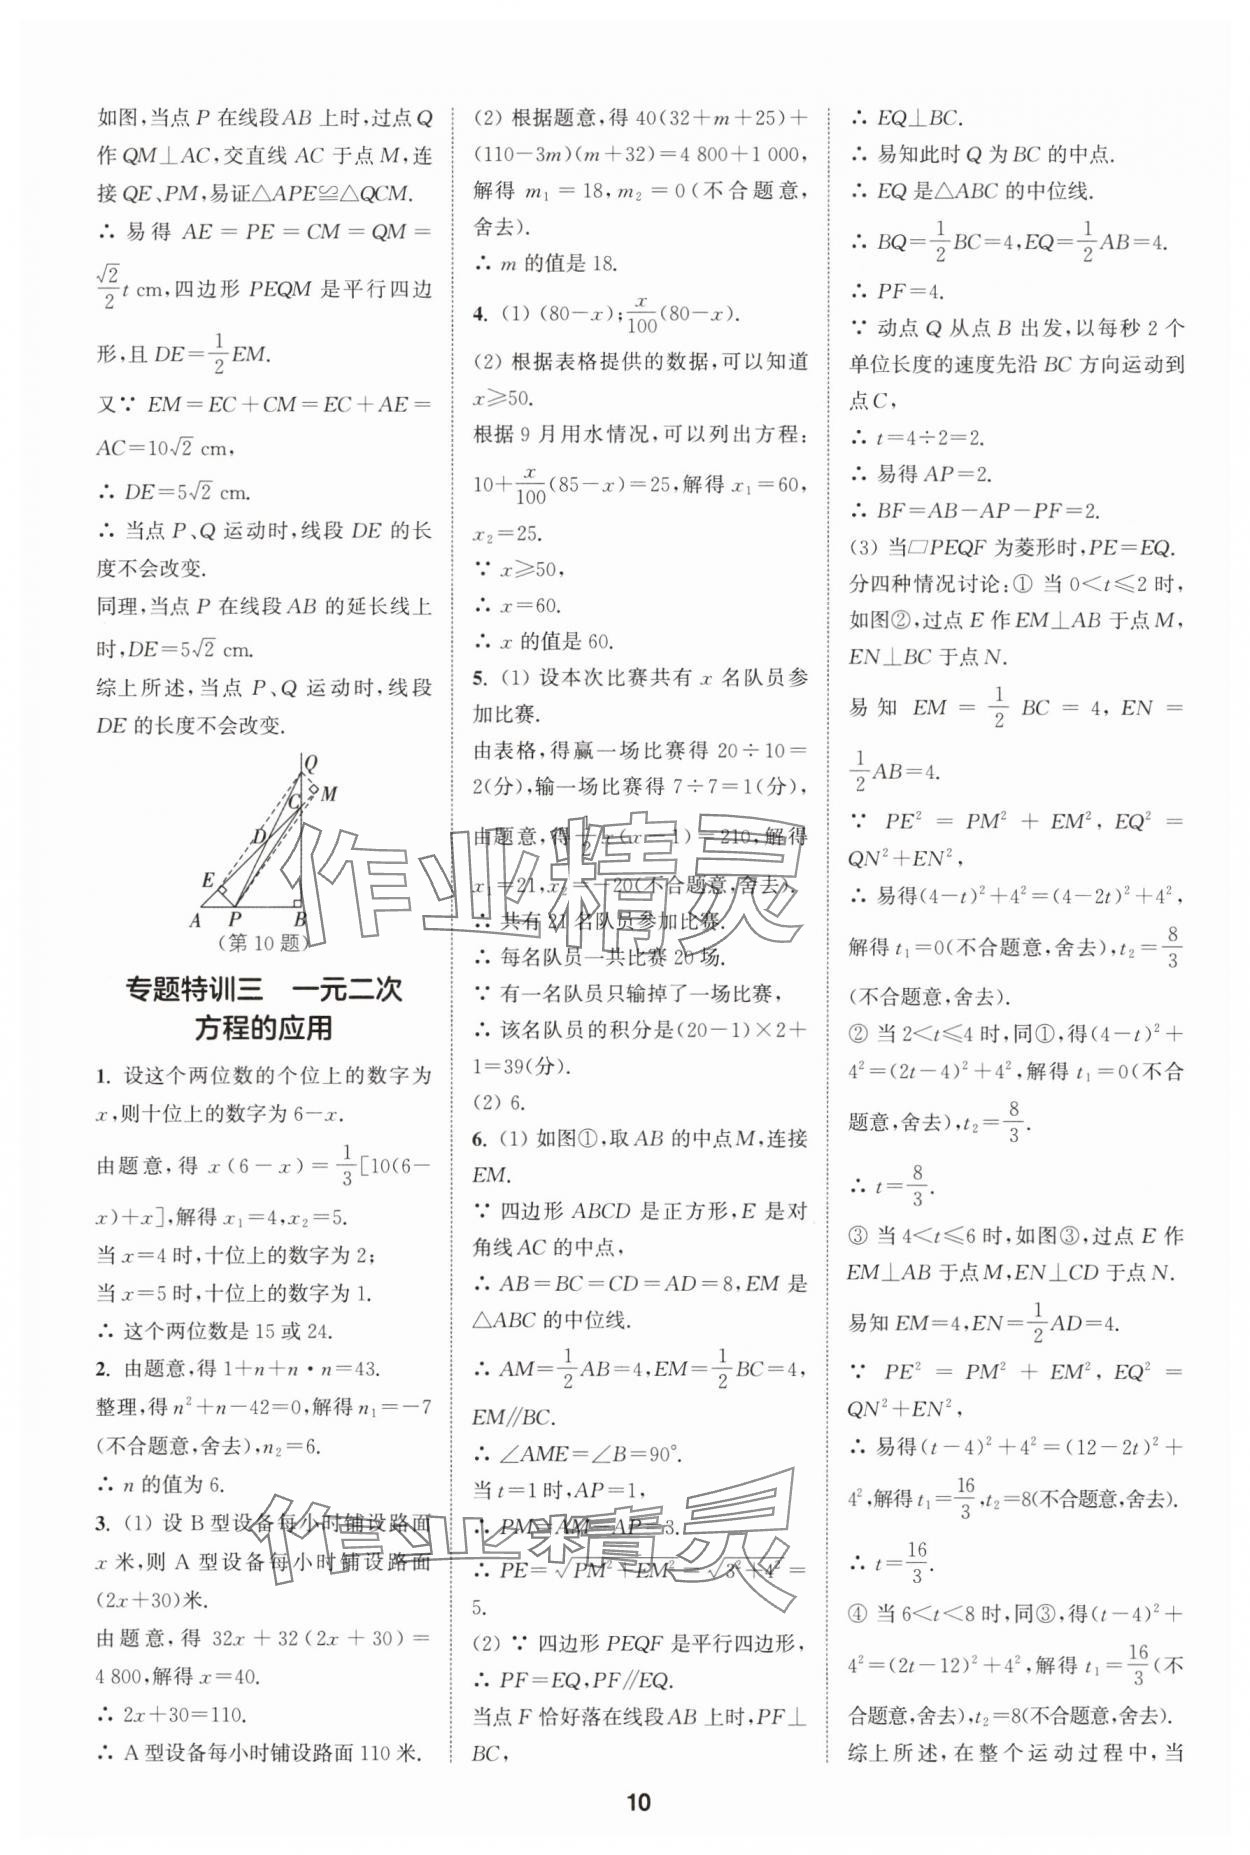 如图,当点 P 在线段 AB 上时,过点 Q
作 QM⊥AC,交直线 AC 于点 M,连
接 QE、PM,易证△APE≌△QCM.
∴ 易得 AE = PE = CM = QM =
√2/2 t cm,四边形 PEQM 是平行四边
形,且 DE=1/2 EM.
又∵ EM=EC+CM=EC+AE=
AC=10√2 cm,
∴ DE=5√2 cm.
∴ 当点 P、Q 运动时,线段 DE 的长
度不会改变.
同理,当点 P 在线段 AB 的延长线上
时,DE=5√2 cm.
综上所述,当点 P、Q 运动时,线段
DE 的长度不会改变.
Q
C
M
D
E
A
P
B
(第 10 题)
专题特训三 一元二次
方程的应用
1. 设这个两位数的个位上的数字为
x,则十位上的数字为 6-x.
由题意,得 x(6-x)=1/3[10(6-
x)+x],解得 x₁=4,x₂=5.
当 x=4 时,十位上的数字为 2;
当 x=5 时,十位上的数字为 1.
∴ 这个两位数是 15 或 24.
2. 由题意,得 1+n+n·n=43.
整理,得 n²+n-42=0,解得 n₁=-7
(不合题意,舍去),n₂=6.
∴ n 的值为 6.
3. (1) 设 B 型设备每小时铺设路面
x 米,则 A 型设备每小时铺设路面
(2x+30)米.
由题意,得 32x+32(2x+30)=
4 800,解得 x=40.
∴ 2x+30=110.
∴ A 型设备每小时铺设路面 110 米.
(2) 根据题意,得 40(32+m+25)+
(110-3m)(m+32)=4 800+1 000,
解得 m₁=18,m₂=0(不合题意,
舍去).
∴ m 的值是 18.
4. (1) (80-x);x/100(80-x).
(2) 根据表格提供的数据,可以知道
x≥50.
根据 9 月用水情况,可以列出方程:
10+x/100(85-x)=25,解得 x₁=60,
x₂=25.
∵ x≥50,
∴ x=60.
∴ x 的值是 60.
5. (1) 设本次比赛共有 x 名队员参
加比赛.
由表格,得赢一场比赛得 20÷10=
2(分),输一场比赛得 7÷7=1(分),
由题意,得 1/2 x(x-1)=210,解得
x₁=21,x₂=-20(不合题意,舍去).
∴ 共有 21 名队员参加比赛.
∴ 每名队员一共比赛 20 场.
∵ 有一名队员只输掉了一场比赛,
∴ 该名队员的积分是(20-1)×2+
1=39(分).
(2) 6.
6. (1) 如图①,取 AB 的中点 M,连接
EM.
∵ 四边形 ABCD 是正方形,E 是对
角线 AC 的中点,
∴ AB=BC=CD=AD=8,EM 是
△ABC 的中位线.
∴ AM=1/2 AB=4,EM=1/2 BC=4,
EM∥BC.
∴ ∠AME=∠B=90°.
当 t=1 时,AP=1,
∴ PM=AM-AP=3.
∴ PE=√(PM²+EM²)=√(3²+4²)=
5.
(2) ∵ 四边形 PEQF 是平行四边形,
∴ PF=EQ,PF∥EQ.
当点 F 恰好落在线段 AB 上时,PF⊥
BC,
∴ EQ⊥BC.
∴ 易知此时 Q 为 BC 的中点.
∴ EQ 是△ABC 的中位线.
∴ BQ=1/2 BC=4,EQ=1/2 AB=4.
∴ PF=4.
∵ 动点 Q 从点 B 出发,以每秒 2 个
单位长度的速度先沿 BC 方向运动到
点 C,
∴ t=4÷2=2.
∴ 易得 AP=2.
∴ BF=AB-AP-PF=2.
(3) 当▱PEQF 为菱形时,PE=EQ.
分四种情况讨论:① 当 0<t≤2 时,
如图②,过点 E 作 EM⊥AB 于点 M,
EN⊥BC 于点 N.
易知 EM = 1/2 BC = 4, EN =
1/2 AB=4.
∵ PE² = PM² + EM², EQ² =
QN²+EN²,
∴ 易得(4-t)²+4²=(4-2t)²+4²,
解得 t₁=0(不合题意,舍去),t₂=8/3
(不合题意,舍去).
② 当 2<t≤4 时,同①,得(4-t)²+
4²=(2t-4)²+4²,解得 t₁=0(不合
题意,舍去),t₂=8/3.
∴ t=8/3.
③ 当 4<t≤6 时,如图③,过点 E 作
EM⊥AB 于点 M,EN⊥CD 于点 N.
易知 EM=4,EN=1/2 AD=4.
∵ PE² = PM² + EM², EQ² =
QN²+EN²,
∴ 易得(t-4)²+4²=(12-2t)²+
4²,解得 t₁=16/3,t₂=8(不合题意,舍去).
∴ t=16/3.
④ 当 6<t<8 时,同③,得(t-4)²+
4²=(2t-12)²+4²,解得 t₁=16/3(不
合题意,舍去),t₂=8(不合题意,舍去).
综上所述,在整个运动过程中,当
作业精灵
作业精灵
10